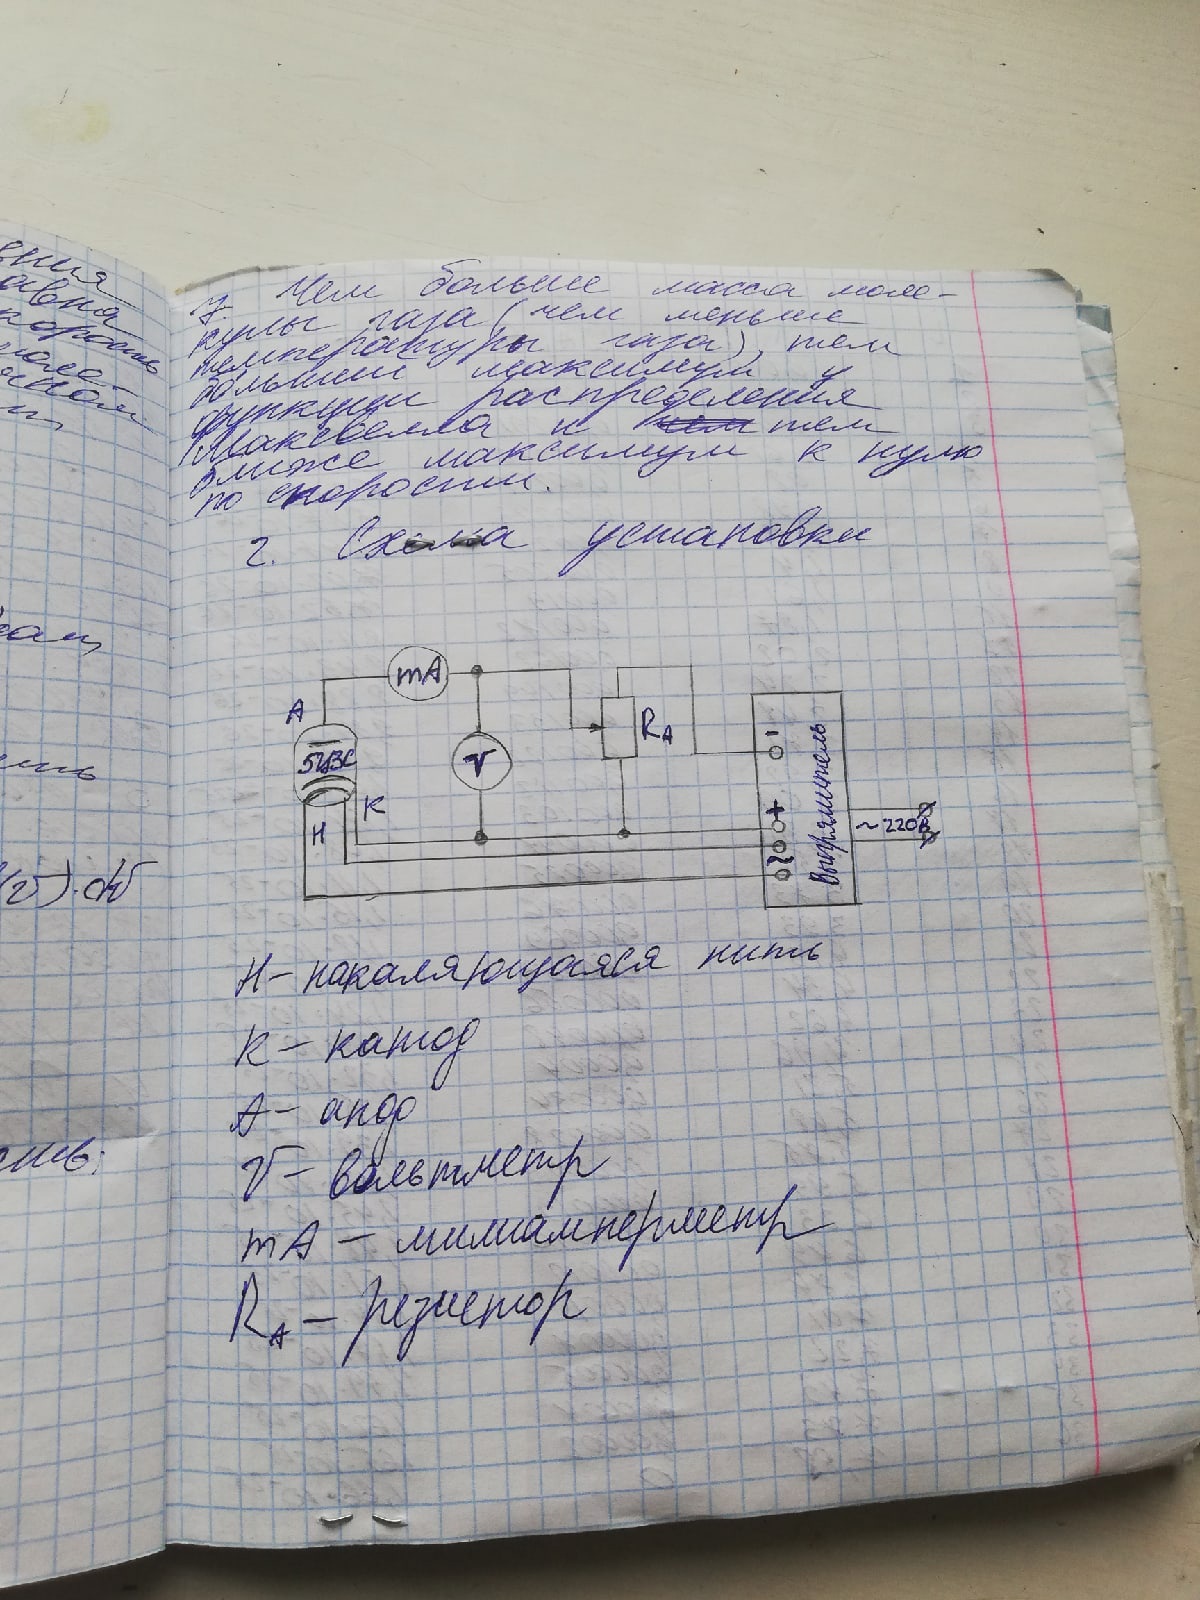 вния
авна
корость
моле-
ином
7. Чем больше масса моле-
кулы газа (чем меньше
температуры газа), тем
больший максимум у
функции распределения
Максвелла и чем тем
ближе максимум к нулю
по скорости.
2. Схема установки
mA
A
5Ц3С
V
RA
K
Н
-
+
~
Выпрямитель
~ 220В
Н - накаляющаяся нить
К - катод
А - анод
V - вольтметр
mA - милиамперметр
RA - резистор